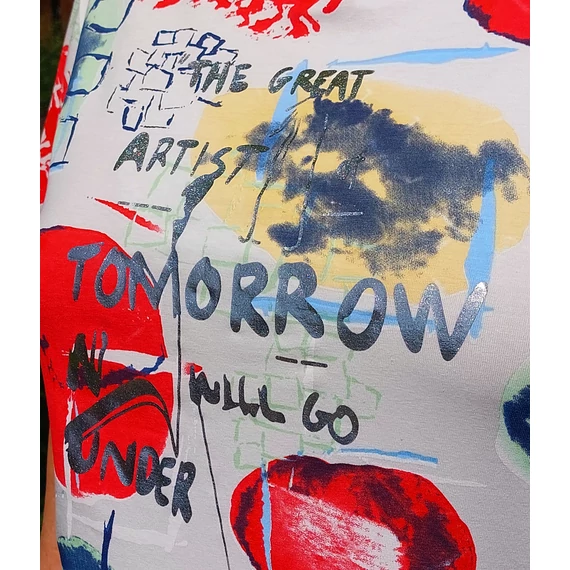 THE GREAT
ARTIST
TOMORROW
WILL GO
UNDER